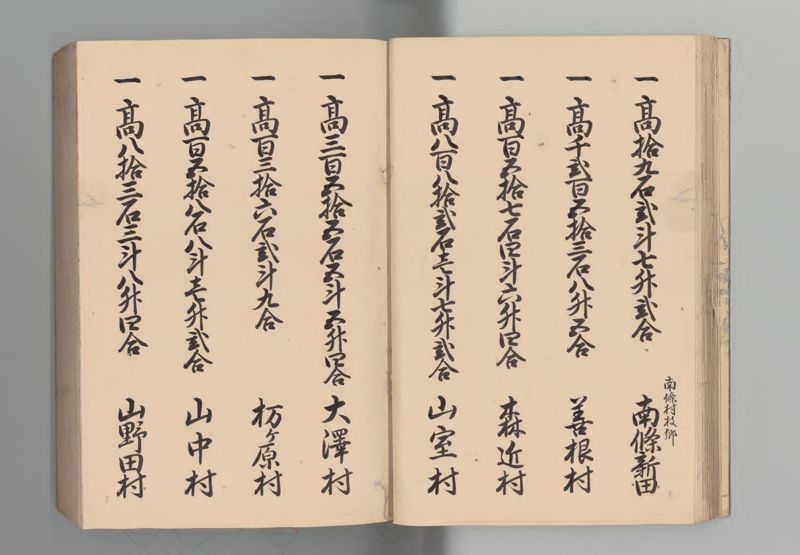 南條村枝郷
一 高拾九石弐斗七升弐合 南條新田
一 高千弐百五拾三石八升五合 善根村
一 高百五拾七石四斗六升四合 森近村
一 高八百八拾弐石壱斗七升弐合 山室村
一 高三百五拾五石五斗五升四合 大澤村
一 高百三拾六石弐斗九合 枋ヶ原村
一 高百五拾八石八斗壱升弐合 山中村
一 高八拾三石三斗八升四合 山野田村